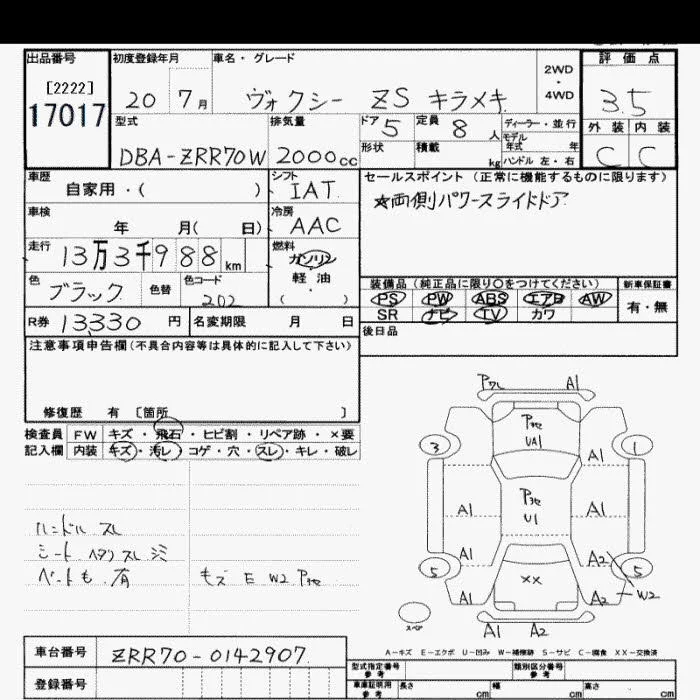 出品番号
[2222]
17017
初度登録年月
20 7月
車名・グレード
ヴォクシー ZS キラメキ
2WD
・
4WD
評価点
3.5
外装 内装
C C
型式
DBA-ZRR70W
排気量
2000cc
ドア 5
定員 8人
ディーラー・並行
モデル
年式 年
形状
積載 kg
ハンドル 左・右
車歴
自家用・( )
シフト
IAT
セールスポイント (正常に機能するものに限ります)
☆両側パワースライドドア
車検
年 月( 日)
冷房
AAC
走行
13万3千988km
燃料
ガソリン
軽油
( ・ )
色
ブラック
色替
色コード
202
装備品(純正品に限り〇をつけてください)
新車保証書
PS PW ABS エアB AW
SR ナビ TV カワ
有・無
R券 13330円
名変期限 月 日
後日品
注意事項申告欄(不具合内容等は具体的に記入して下さい)
修復歴 有 〔箇所 〕
検査員 FW キズ・飛石・ヒビ割・リペア跡・×要
記入欄 内装 キズ・汚レ・コゲ・穴・スレ・キレ・破レ
ハンドル スレ
シート ヘタリ スレ シミ
ペットも 有
キズ E W2 Pヤセ
Pワレ A1
Pヤセ
UA1
3 1
A1
Pヤセ
U1
A1 A1
A1 A2
5 5
XX
A1 A2 W2
スペア
A1 A2
A-キズ E-エクボ U-凹み W-補修跡 S-サビ C-腐食 XX-交換済
車台番号 ZRR70-0142907
登録番号
型式指定番号
参考
類別区分番号
参考
車庫証明用
参考
長さ cm 幅 cm 高さ cm